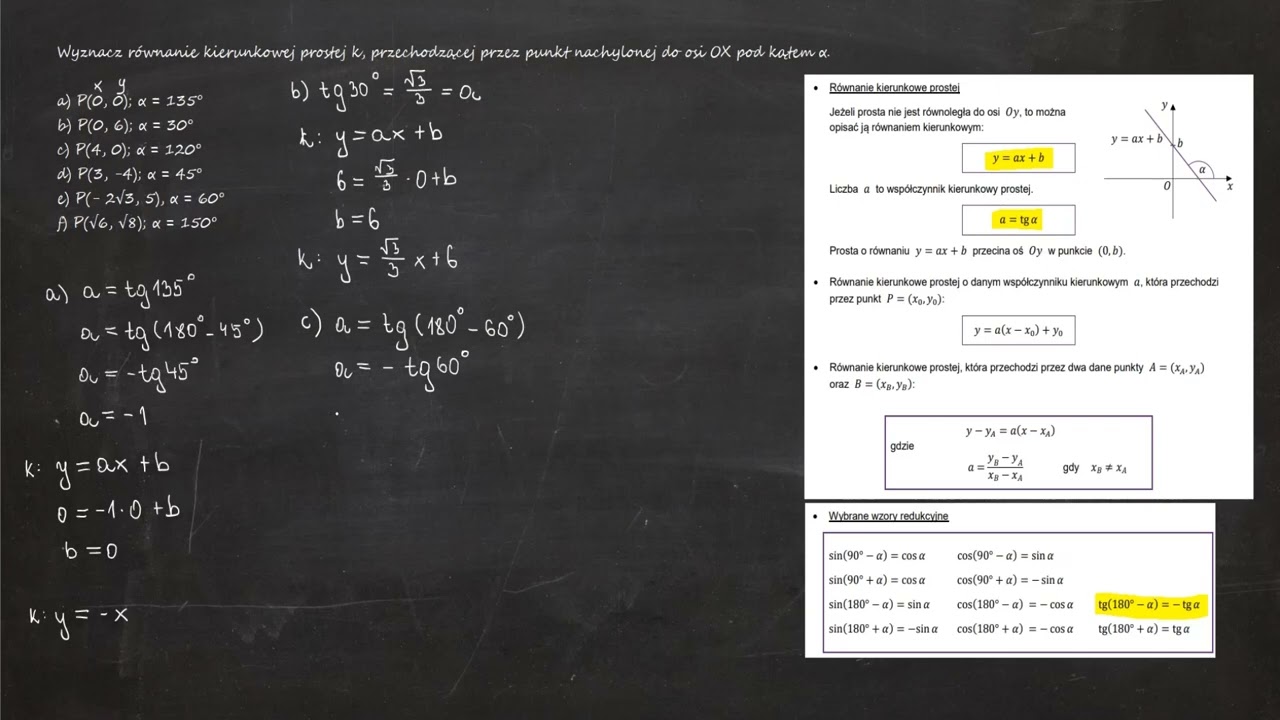 Wyznacz równanie kierunkowej prostej k, przechodzącej przez punkt nachylonej do osi OX pod kątem α.
x y
a) P(0, 0); α = 135°
b) P(0, 6); α = 30°
c) P(4, 0); α = 120°
d) P(3, -4); α = 45°
e) P(- 2√3, 5), α = 60°
f) P(√6, √8); α = 150°
a) a = tg135°
a = tg(180° - 45°)
a = -tg45°
a = -1
k: y = ax + b
0 = -1·0 + b
b = 0
k: y = -x
b) tg30° = √3/3 = a
k: y = ax + b
6 = √3/3 · 0 + b
b = 6
k: y = √3/3 x + 6
c) a = tg(180° - 60°)
a = - tg60°
• Równanie kierunkowe prostej
Jeżeli prosta nie jest równoległa do osi Oy, to można
opisać ją równaniem kierunkowym:
y = ax + b
Liczba a to współczynnik kierunkowy prostej.
a = tg α
Prosta o równaniu y = ax + b przecina oś Oy w punkcie (0, b).
y
y = ax + b
b
α
0
x
• Równanie kierunkowe prostej o danym współczynniku kierunkowym a, która przechodzi
przez punkt P = (x₀, y₀):
y = a(x − x₀) + y₀
• Równanie kierunkowe prostej, która przechodzi przez dwa dane punkty A = (x_A, y_A)
oraz B = (x_B, y_B):
y − y_A = a(x − x_A)
gdzie
a = (y_B − y_A)/(x_B − x_A) gdy x_B ≠ x_A
• Wybrane wzory redukcyjne
sin(90° − α) = cos α cos(90° − α) = sin α
sin(90° + α) = cos α cos(90° + α) = − sin α
sin(180° − α) = sin α cos(180° − α) = − cos α tg(180° − α) = − tg α
sin(180° + α) = −sin α cos(180° + α) = − cos α tg(180° + α) = tg α